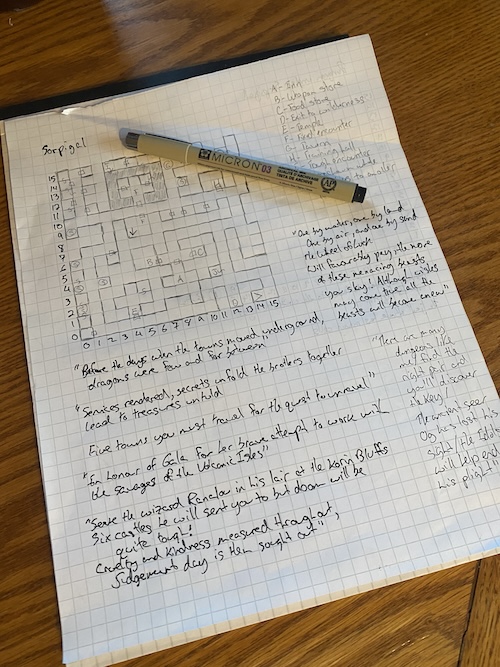 Sorpigal
A- Inn
B- Weapon store
C- Food store
D- Exit to wilderness
E- Temple
F- Fixed encounter
MICRON 03
AP
15
14
13
12
11
10
9
8
7
6
5
4
3
2
1
0
0 1 2 3 4 5 6 7 8 9 10 11 12 13 14 15
"One by water, one by land
One by air, and one by sand
The wheel of luck
will favourably pay, the more
of these menacing beasts
you slay! Although wishes
may come true, all the
beasts will become anew"
"Before the days when the towns moved underground,
dragons were few and far between"
"Services rendered, secrets unfold the brothers together
lead to treasures untold
Five towns you must travel for the quest to unravel"
"In Honour of Gala for her brave attempt to work with
the savages of the Volcanic Isles"
"Serve the wizard Ranalou in his lair at the Korin Bluffs
Six castles he will sent you to but doom will be
quite tough!
Cruelty and Kindness measured throughout,
Judgement day is then sought out"
"There are many
dungeons like
me, find the
right pair and
you'll discover
a key!
The ancient seer
Og has lost his
Sight, the Idols
will help end
his plight"